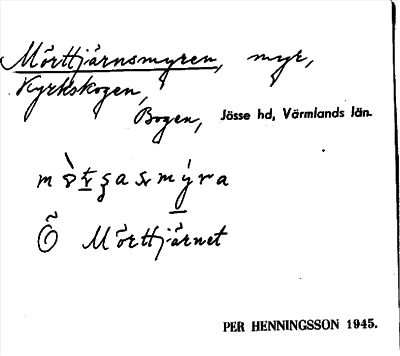 Mörttjärnsmyren, myr,
Kyrkskogen,
Bogen, Jösse hd, Värmlands län.
Ö Mörttjärnet
PER HENNINGSSON 1945.